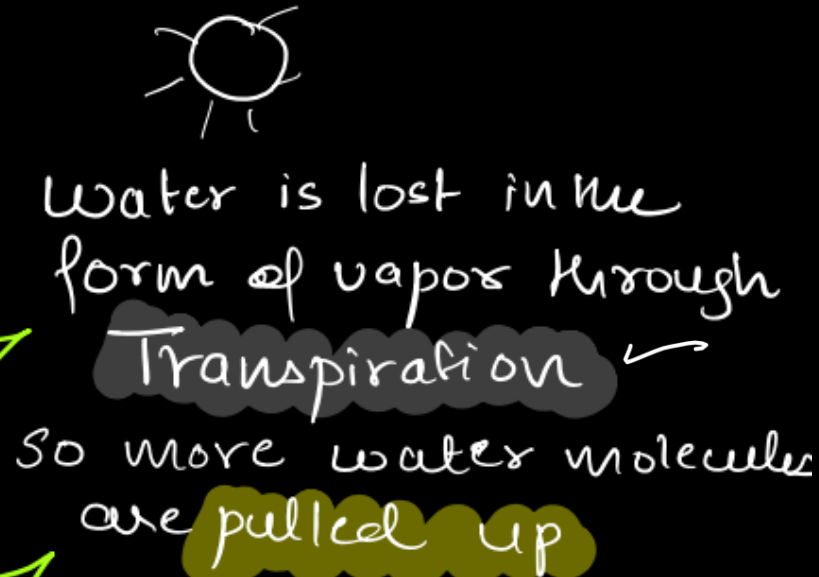 Water is lost in the
form of vapor through
Transpiration
So more water molecules
are pulled up